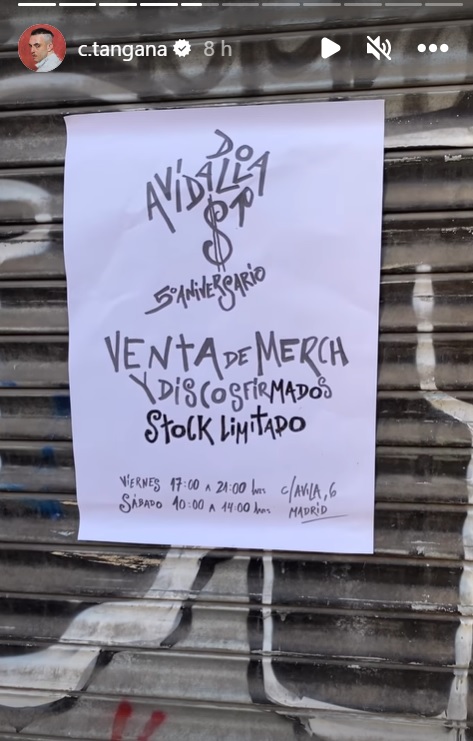 c.tangana 8 h
DO
AVÍDALLA
$R
5º ANIVERSARIO
VENTA DE MERCH
Y DISCOS FIRMADOS
STOCK LIMITADO
VIERNES 17:00 A 21:00 hrs
SÁBADO 10:00 A 14:00 hrs
C/AVILA, 6
MADRID